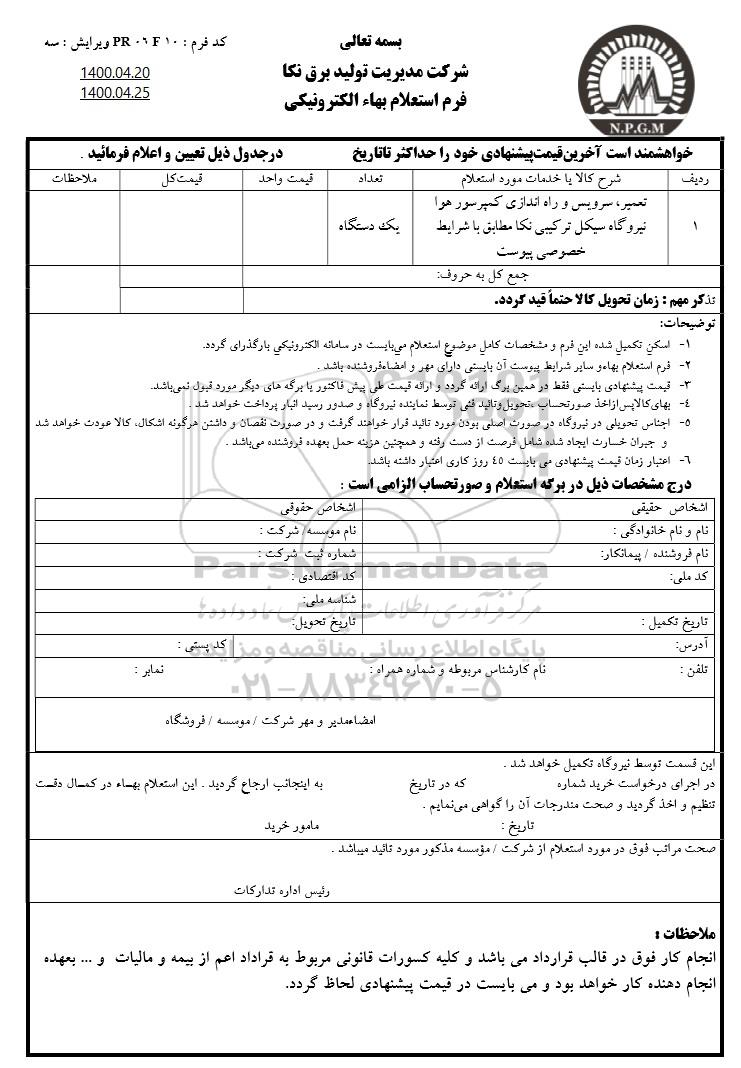 بسمه تعالی
کد فرم : PR ۰۶ F ۱۰ ویرایش : سه
شرکت مدیریت تولید برق نکا
1400.04.20
فرم استعلام بهاء الکترونیکی
1400.04.25
N.P.G.M
خواهشمند است آخرین‌قیمت‌پیشنهادی خود را حداکثر تاتاریخ درجدول ذیل تعیین و اعلام فرمائید .
ردیف شرح کالا یا خدمات مورد استعلام تعداد قیمت واحد قیمت‌کل ملاحظات
تعمیر، سرویس و راه اندازی کمپرسور هوا
۱ نیروگاه سیکل ترکیبی نکا مطابق با شرایط یک دستگاه
خصوصی پیوست
جمع کل به حروف:
تذکر مهم : زمان تحویل کالا حتماً قید گردد.
توضیحات:
۱- اسکن تکمیل شده این فرم و مشخصات کامل موضوع استعلام می‌بایست در سامانه الکترونیکی بارگذرای گردد.
۲- فرم استعلام بهاءو سایر شرایط پیوست آن بایستی دارای مهر و امضاءفروشنده باشد .
۳- قیمت پیشنهادی بایستی فقط در همین برگ ارائه گردد و ارائه قیمت طی پیش فاکتور یا برگه های دیگر مورد قبول نمی‌باشد.
۴- بهای‌کالاپس‌ازاخذ صورتحساب ،تحویل‌وتائید فنی توسط نماینده نیروگاه و صدور رسید انبار پرداخت خواهد شد .
۵- اجناس تحویلی در نیروگاه در صورت اصلی بودن مورد تائید قرار خواهند گرفت و در صورت نقصان و داشتن هرگونه اشکال، کالا عودت خواهد شد
و جبران خسارت ایجاد شده شامل فرصت از دست رفته و همچنین هزینه حمل بعهده فروشنده می‌باشد .
۶- اعتبار زمان قیمت پیشنهادی می بایست ۴۵ روز کاری اعتبار داشته باشد.
درج مشخصات ذیل در برگه استعلام و صورتحساب الزامی است :
اشخاص حقیقی اشخاص حقوقی
نام و نام خانوادگی : نام موسسه/ شرکت :
نام فروشنده / پیمانکار: شماره ثبت شرکت :
ParsNamadData
کد ملی: کد اقتصادی :
شناسه ملی:
مرکز فرآوری اطلاعات پارس نماد داده‌ها
تاریخ تکمیل : تاریخ تحویل:
آدرس: کد پستی :
پایگاه اطلاع رسانی مناقصه و مزایده
تلفن : نام کارشناس مربوطه و شماره همراه : نمابر :
۰۲۱-۸۸۳۴۹۶۷۰-۵
امضاءمدیر و مهر شرکت / موسسه / فروشگاه
این قسمت توسط نیروگاه تکمیل خواهد شد .
در اجرای درخواست خرید شماره که در تاریخ به اینجانب ارجاع گردید . این استعلام بهـاء در کمـال دقـت
تنظیم و اخذ گردید و صحت مندرجات آن را گواهی می‌نمایم .
تاریخ : مامور خرید
صحت مراتب فوق در مورد استعلام از شرکت / مؤسسه مذکور مورد تائید میباشد .
رئیس اداره تدارکات
ملاحظات :
انجام کار فوق در قالب قرارداد می باشد و کلیه کسورات قانونی مربوط به قراداد اعم از بیمه و مالیات و ... بعهده
انجام دهنده کار خواهد بود و می بایست در قیمت پیشنهادی لحاظ گردد.